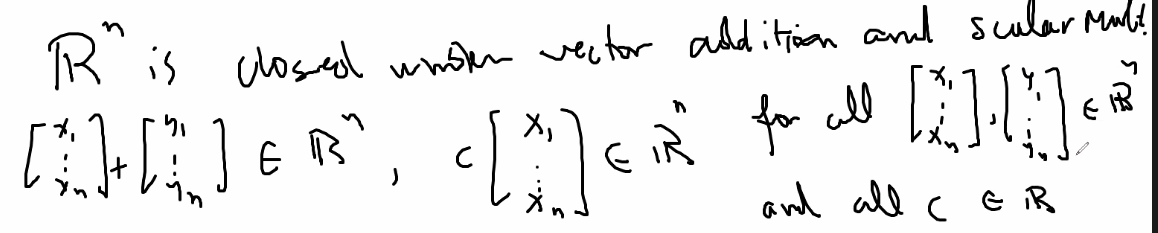 ℝⁿ is closed under vector addition and scalar mult.
[x₁ ⋮ xₙ] + [y₁ ⋮ yₙ] ∈ ℝⁿ, c[x₁ ⋮ xₙ] ∈ ℝⁿ for all [x₁ ⋮ xₙ], [y₁ ⋮ yₙ] ∈ ℝⁿ
and all c ∈ ℝ